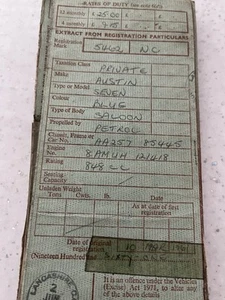 RATES OF DUTY (see note below)
£ 25.00
4 months £
EXTRACT FROM REGISTRATION PARTICULARS
Registration Mark 5462 NC
Taxation Class PRIVATE
Make AUSTIN
Type or Model SEVEN
Colour BLUE
Type of Body SALOON
Propelled by PETROL
Chassis, Frame or Car No. AA2S7 85445
Engine No. 8AMUH 121418
Rating 848 CC
Seating Capacity
Unladen Weight
Tons Cwts. lb.
As at date of first registration
Date
Date of original registration 10
(Nineteen Hundred and
It is an offence under the Vehicles
(Excise) Act 1971, to alter any
of the above details
2